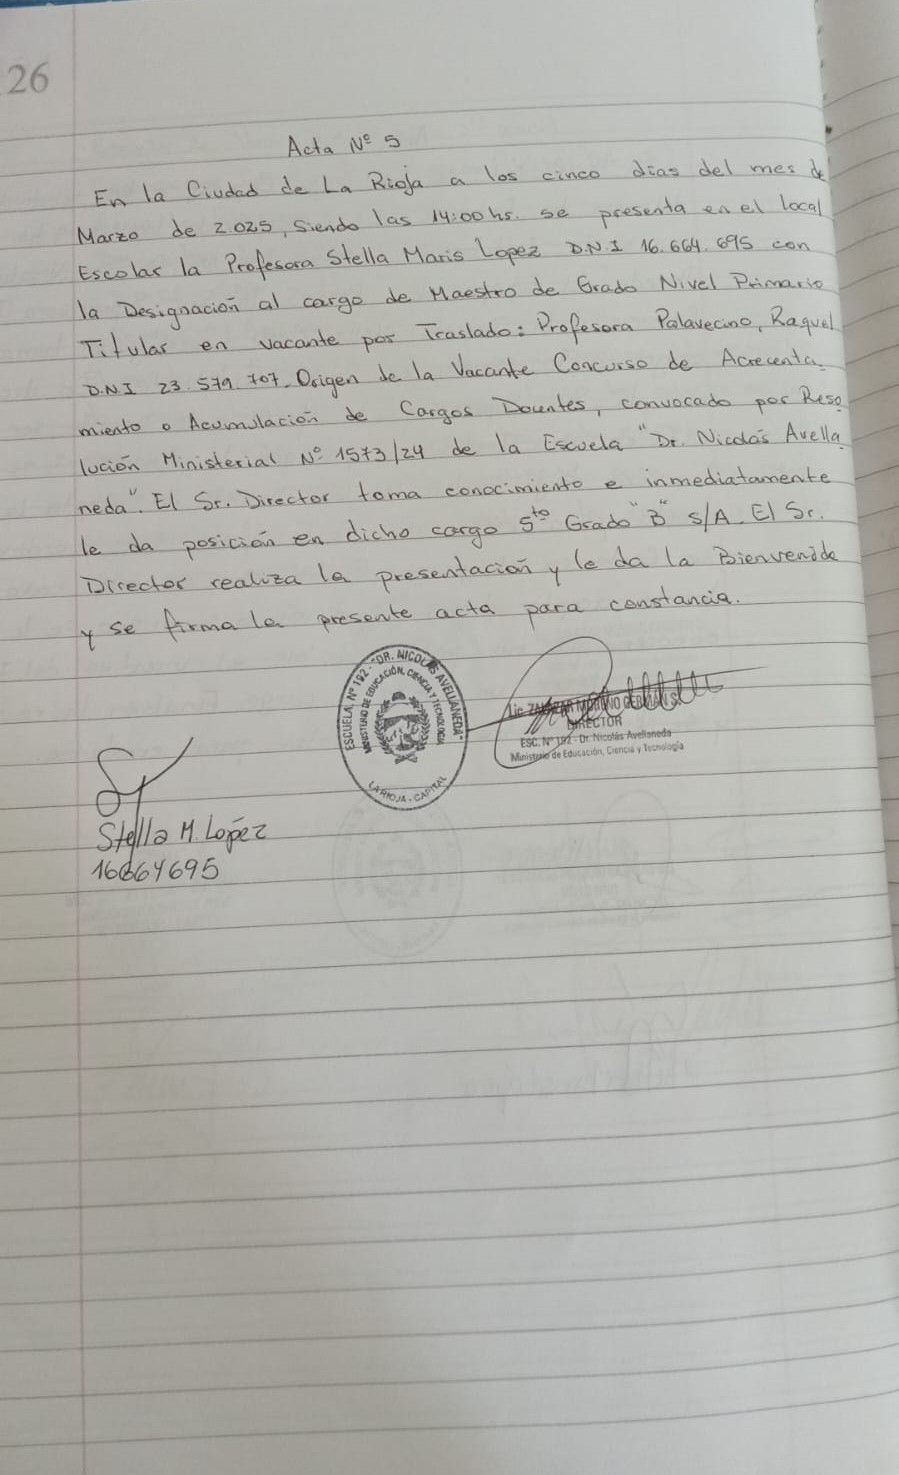 26
Acta Nº 5
En la Ciudad de La Rioja a los cinco dias del mes de
Marzo de 2.025, Siendo las 14:00 hs. se presenta en el local
Escolar la Profesora Stella Maris Lopez D.N.I 16.664.695 con
la Designación al cargo de Maestro de Grado Nivel Primario
Titular en vacante por Traslado: Profesora Palavecino, Raquel
D.N.I 23.579.707. Origen de la Vacante Concurso de Acrecenta-
miento o Acumulación de Cargos Docentes, convocado por Reso
lución Ministerial Nº 1573/24 de la Escuela "Dr. Nicolás Avella
neda". El Sr. Director toma conocimiento e inmediatamente
le da posición en dicho cargo 5to Grado "B" S/A. El Sr.
Director realiza la presentación y le da la Bienvenida
y se firma la presente acta para constancia.
ESCUELA Nº 192 - "DR. NICOLÁS AVELLANEDA"
MINISTERIO DE EDUCACIÓN, CIENCIA Y TECNOLOGIA
LA RIOJA - CAPITAL
Lic.
DIRECTOR
ESC. Nº 192 - Dr. Nicolás Avellaneda
Ministerio de Educación, Ciencia y Tecnología
Stella M. Lopez
16664695